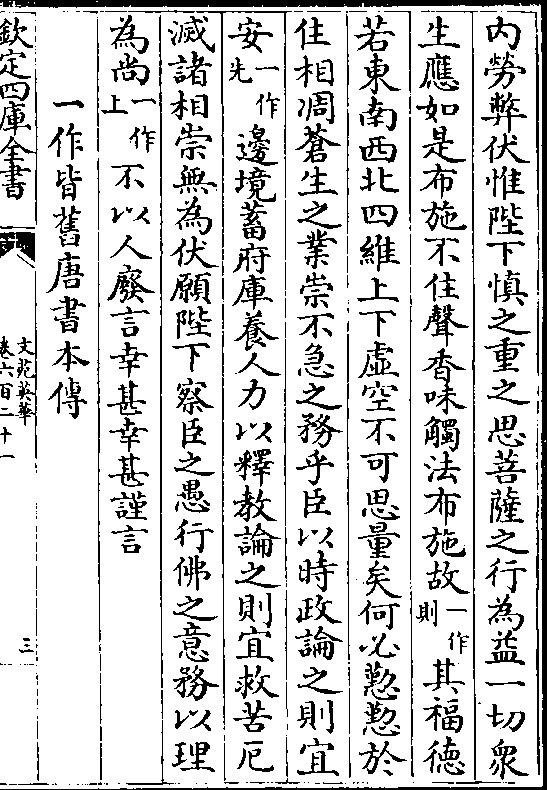 內勞弊伏惟陛下慎之重之思菩薩之行為益一切衆
生應如是布施不住聲香味觸法布施故一作則其福德
若東南西北四維上下虛空不可思量矣何必懃懃於
住相凋蒼生之業崇不急之務乎臣以時政論之則宜
安一作先邊境蓄府庫養人力以釋教論之則宜救苦厄
滅諸相崇無為伏願陛下察臣之愚行佛之意務以理
為尚一作上不以人廢言幸甚幸甚謹言
一作皆舊唐書本傳
欽定四庫全書
文苑英華
卷六百二十一
三